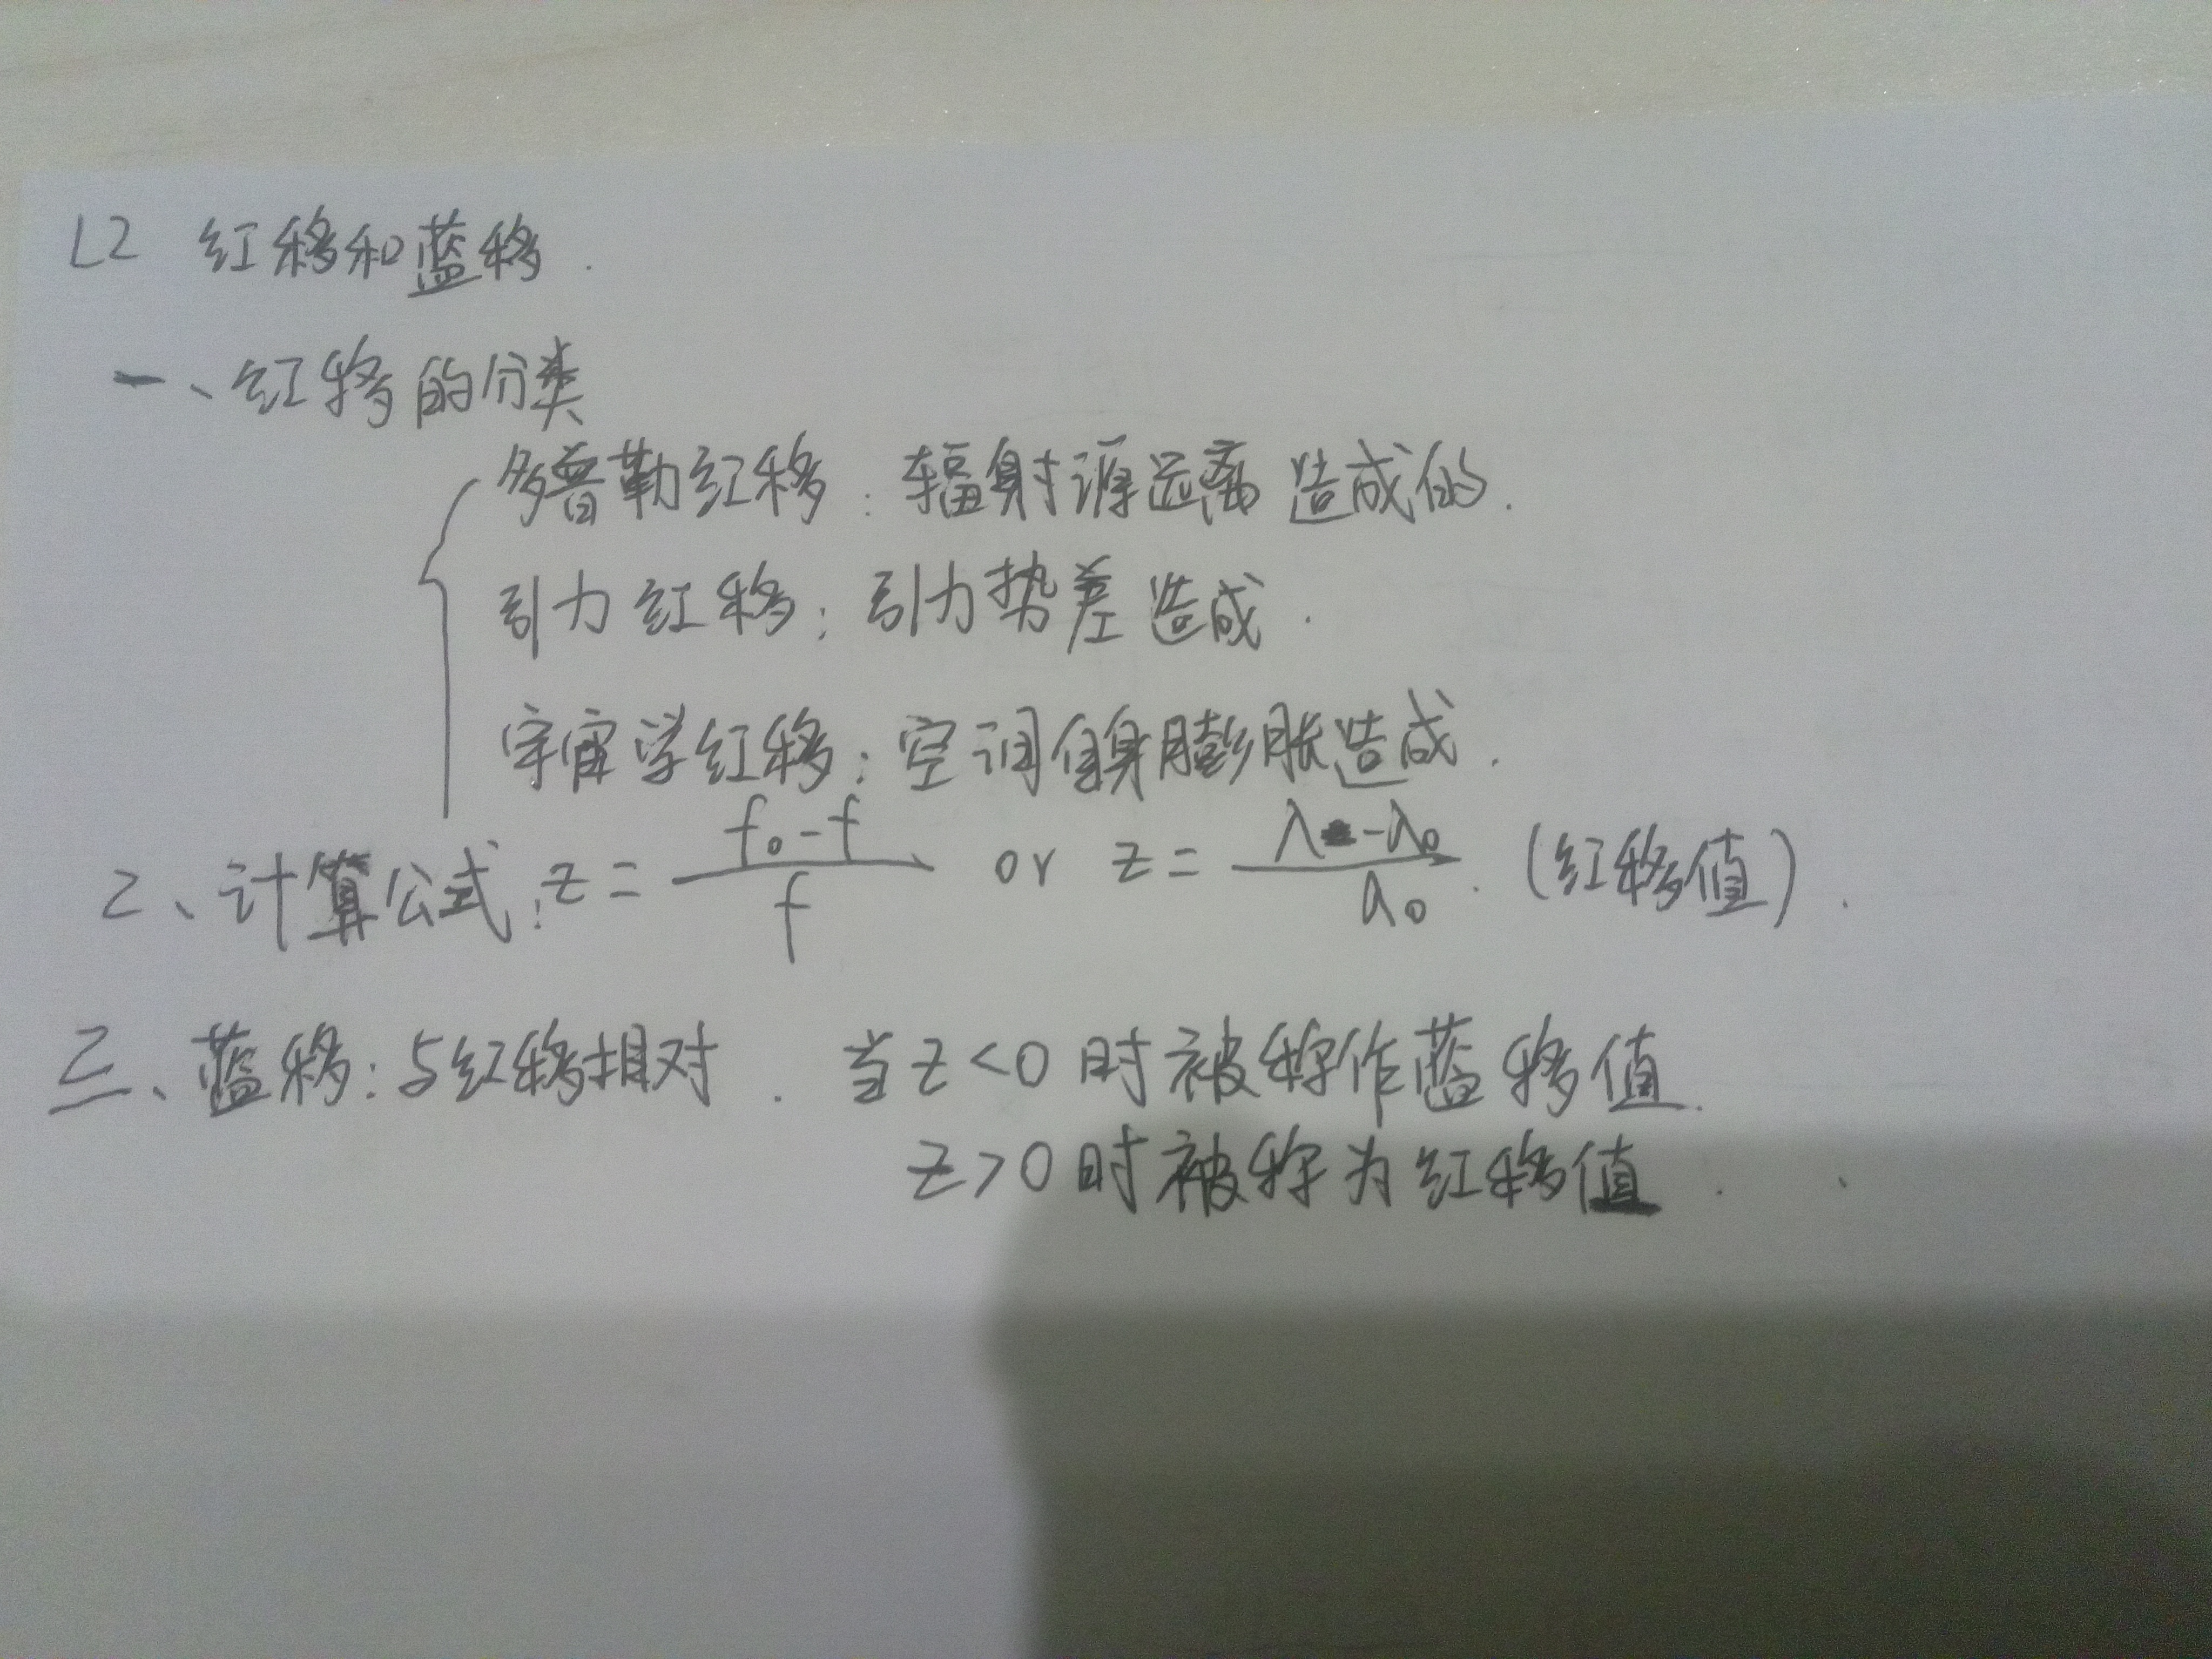 L2 红移和蓝移.
一、红移的分类
多普勒红移:辐射源远离造成的.
引力红移:引力势差造成.
宇宙学红移:空间自身膨胀造成.
2、计算公式:z = (f₀-f)/f or z = (λ-λ₀)/λ₀. (红移值).
三、蓝移:与红移相对. 当z<0时被称作蓝移值.
z>0时被称为红移值.